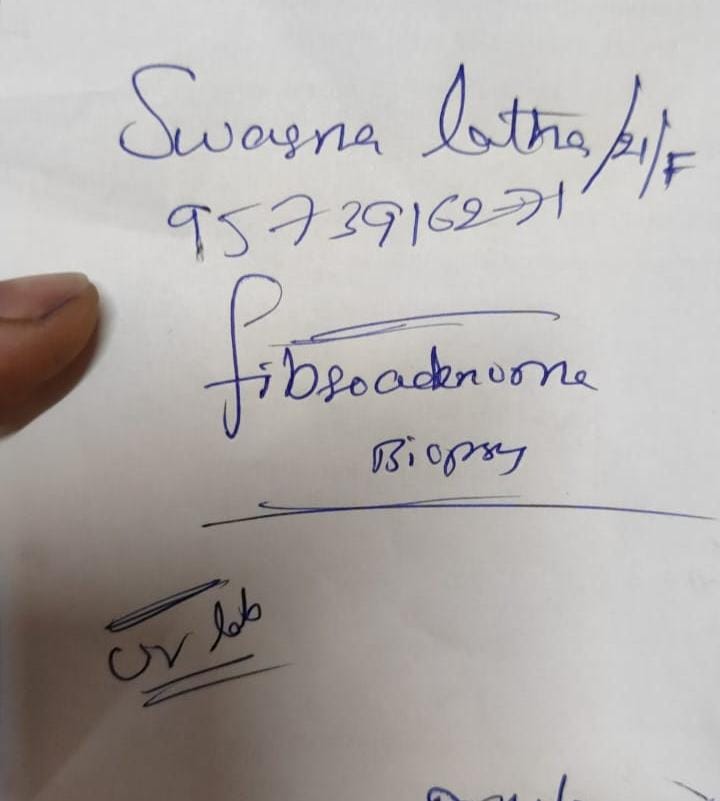 Swagna latha /21/F
9573916271
fibroadenoma
Biopsy
lab